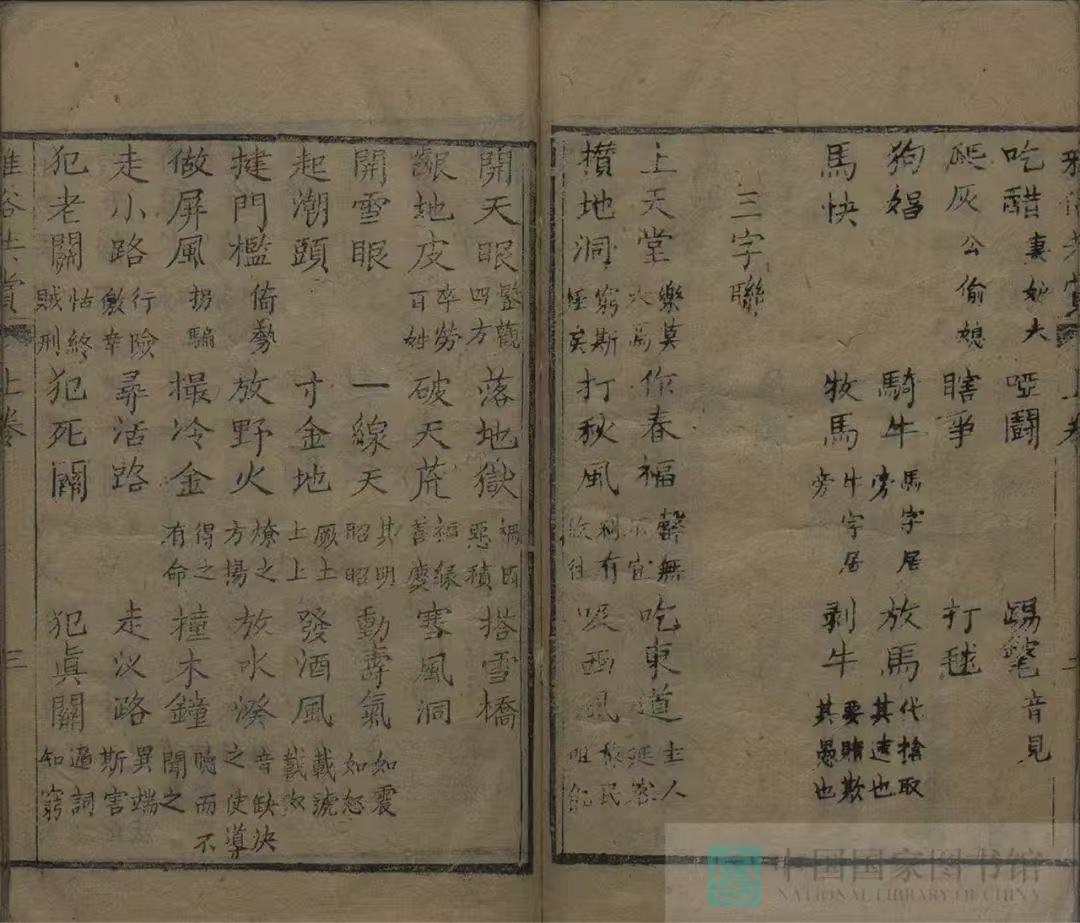 吃醋 妻妒夫 啞鬭 踢毽 音見
爬灰 公偷媳 瞎爭 打毬
狗娼 騎牛 馬字居旁 放馬 代搶取其速也
馬快 牧馬 牛字居旁 剥牛 要賭欺其愚也
三字聯
上天堂 樂莫大焉 作春福 罄無不宜 吃東道 主人延客
攅地洞 窮斯極矣 打秋風 利有攸往 吸西風
開天眼 監觀四方 落地獄 禍因惡積 搭雪橋
齦地皮 卒勞百姓 破天荒 福緣善慶 塞風洞
開雪眼 一線天 其明昭昭 動壽氣 如震如怒
起潮頭 寸金地 厥土上上 發酒風 載號載呶
揵門檻 倚勢 放野火 燎之方揚 放水 音缺決之使導
做屏風 拐騙 撮冷金 得之有命 撞木鐘 聽而不聞之
走小路 行險僥幸 尋活路 走汊路 異端斯害
犯老關 怙終賊刑 犯死關 犯眞關 遁詞知窮
雅俗共賞 上卷 三
中国国家图书馆
NATIONAL LIBRARY OF CHINA